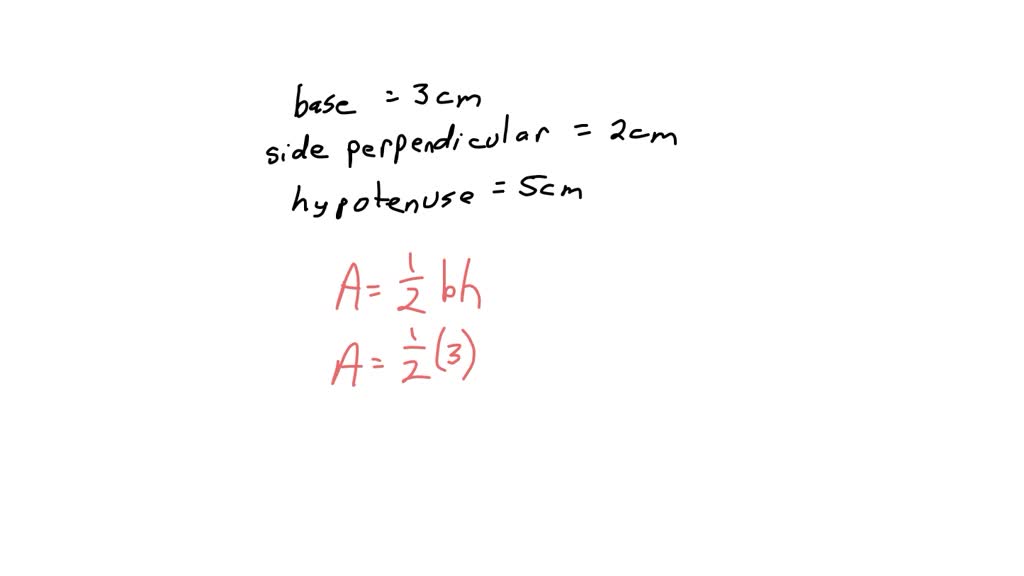 base = 3cm
side perpendicular = 2cm
hypotenuse = 5cm
A = 1/2 bh
A = 1/2 (3)